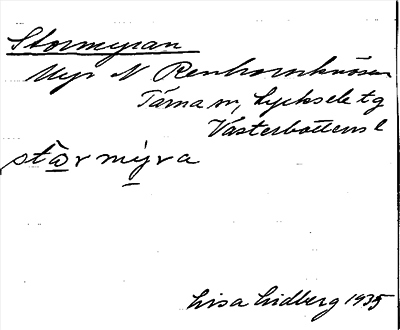 Stormyran
Myr N Renhornknösen
Tärna sn, Lycksele tg
Västerbottens l
stårmýra
Lisa Lidberg 1935